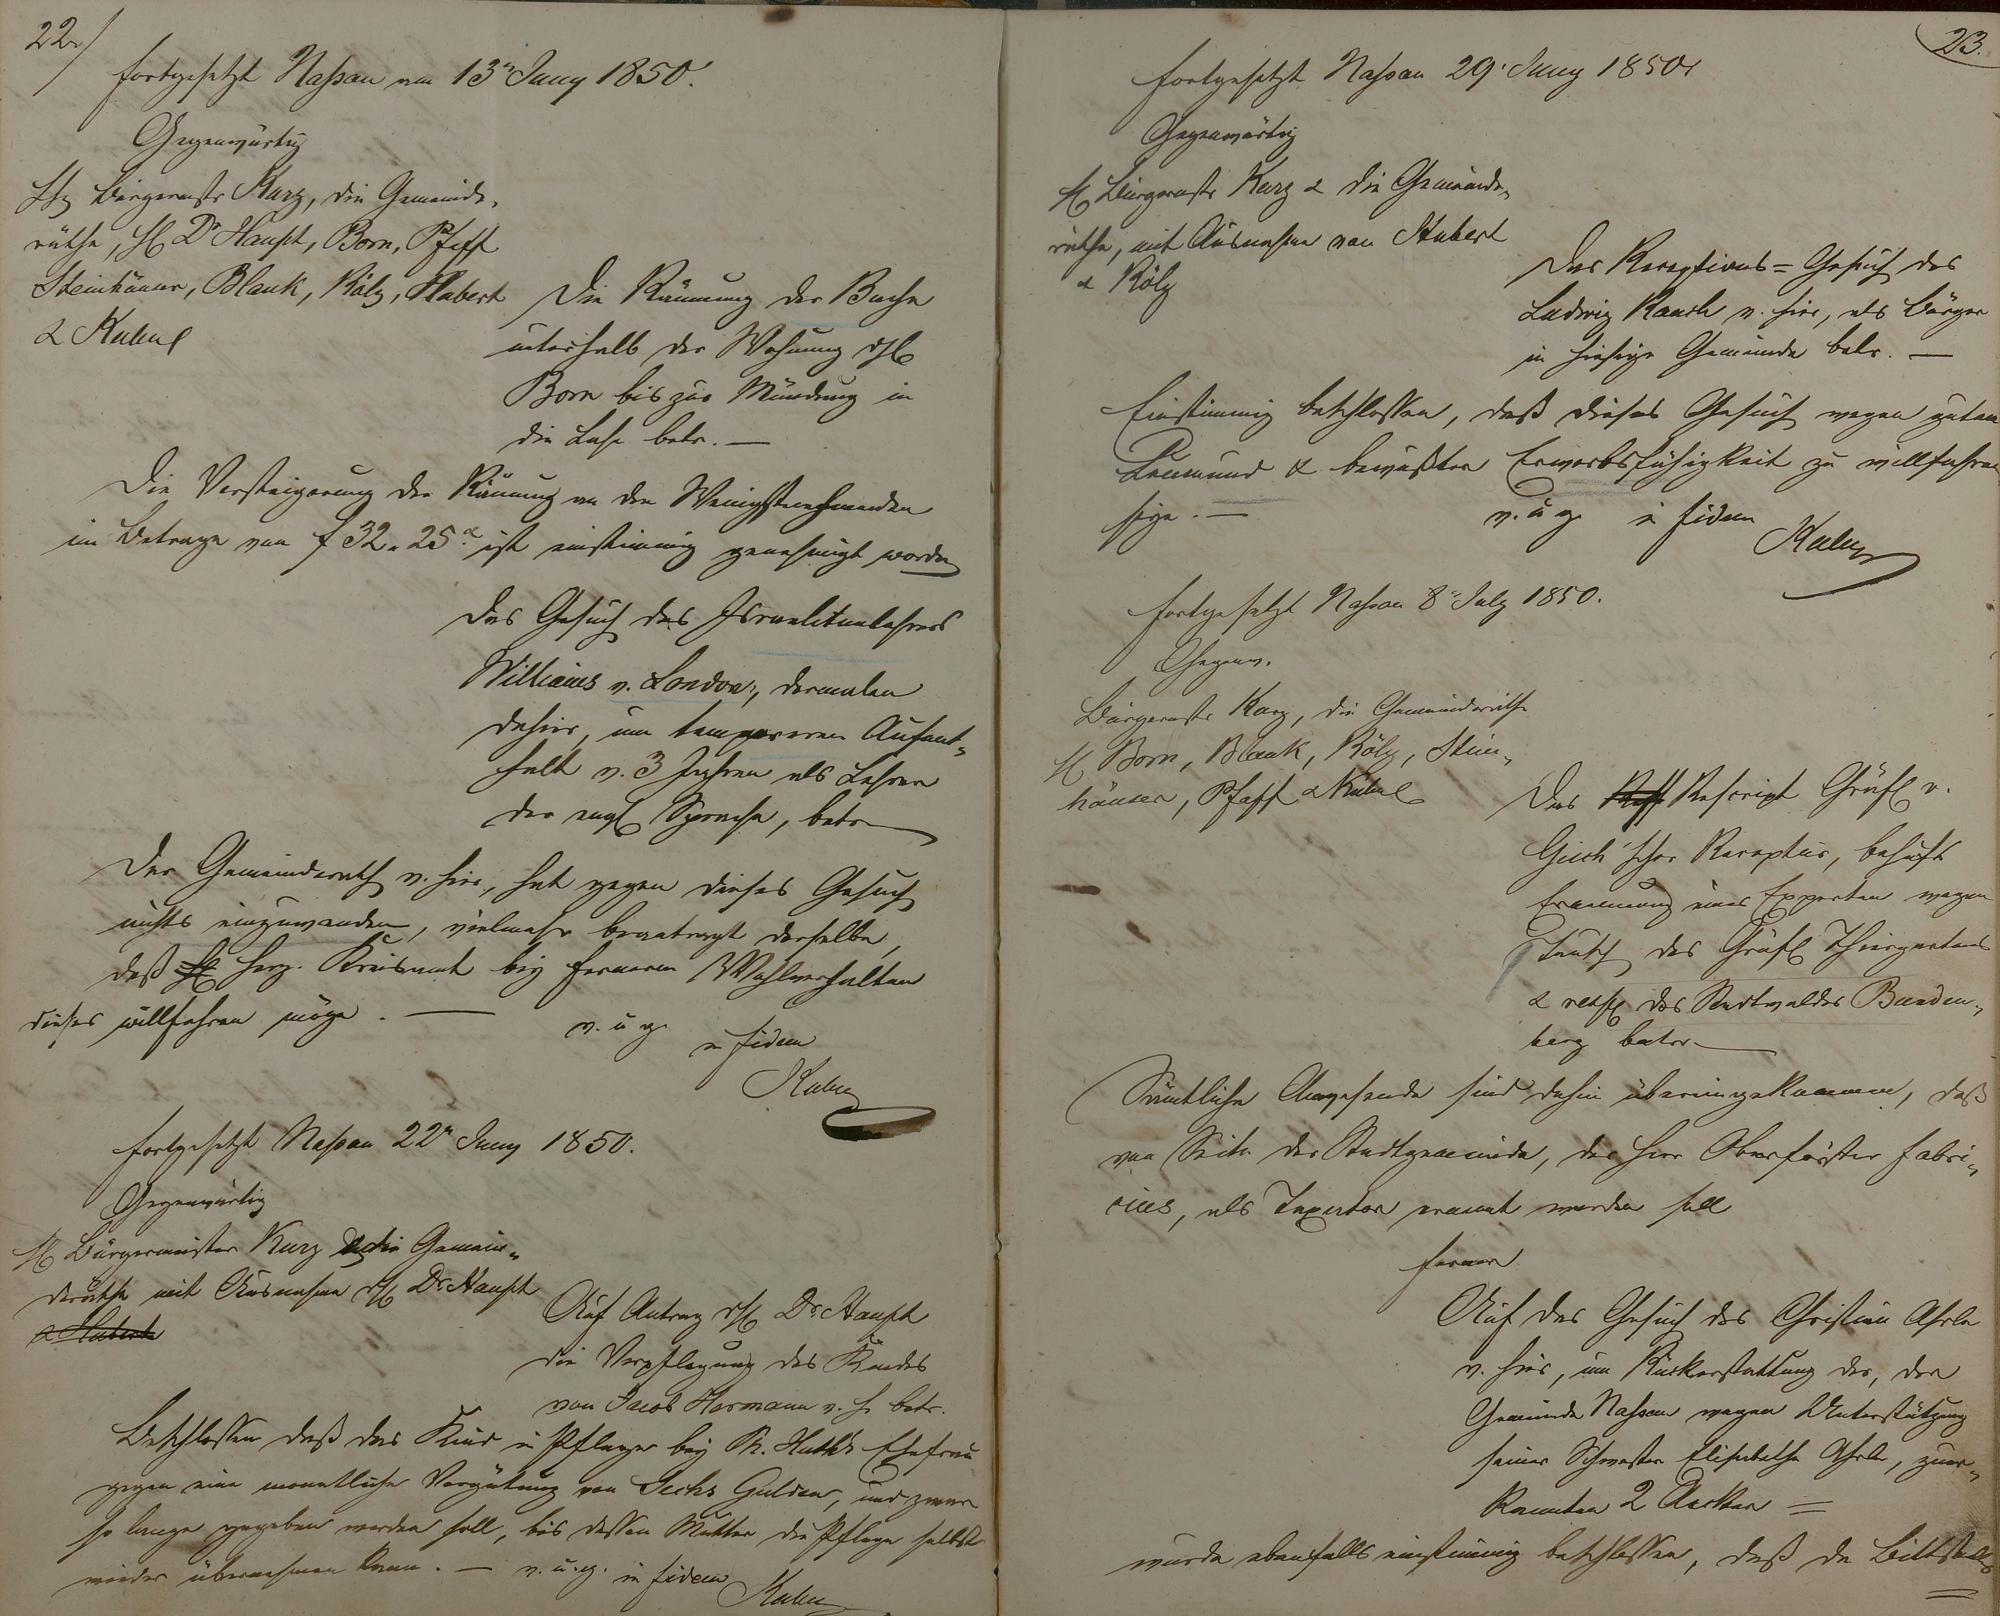 22.
fortgesetzt Nassau am 13n Juny 1850.
Gegenwärtig
Bürgermstr Kurz, die Gemeinde-
räthe, H Dr Haupt, Born, Pfaff
Steinhäuser, Blank, Kölz, Hubert
&
Die Räumung der Bache
unterhalb der Wohnung
Born bis zur Mündung in
die Lahn betr. —
Die Versteigerung der Räumung an den Wenigstnehmenden
im Betrage von f 32. 25 ist einstimmig genehmigt worden
Das Gesuch des Israelitenlehrers
Williams v. London, dermalen
dahier, um temporären Aufent-
halt v. 3 Jahren als Lehrer
der engl Sprache, betr
Der Gemeinderath v. hier, hat gegen dieses Gesuch
nichts einzuwenden, vielmehr beantragt derselbe,
daß Herz. Kreisamt bey fernerem Wohlverhalten
dieses willfahren möge. —
v. u. g.
in fidem
fortgesetzt Nassau 22n Juny 1850.
Gegenwärtig
H Bürgermeister Kurz die Gemein-
deräthe mit Ausnahme Dr Haupt
Auf Antrag Dr Haupt
die Verpflegung des Kindes
von Jacob Hermann v. h. betr.
Beschlossen daß das Kind in Pflege bey Ehefrau
gegen eine monatliche Vergütung von Sechs Gulden, und zwar
so lange gegeben werden soll, bis dessen Mutter die Pflege selbst
wieder übernehmen kann. — v. u. g. in fidem
23.
fortgesetzt Nassau 29. Juny 1850
Gegenwärtig
H Bürgermstr Kurz & die Gemeinde-
räthe, mit Ausnahme von Hubert
& Kölz
Das Receptions-Gesuch des
Ludwig Rauch v. hier, als Bürger
in hiesige Gemeinde betr. —
Einstimmig beschlossen, daß dieses Gesuch wegen gutem
Leumund & bewußter Erwerbsfähigkeit zu willfahren
seye. —
v. u. g. in fidem
fortgesetzt Nassau 8n July 1850.
Gegenw.
Bürgermstr Kurz, die Gemeinderäthe
H Born, Blank, Kölz, Stein-
häuser, Pfaff &
Das Rescript Gräfl v.
Giech'scher Receptur, behufs
Ernennung eines Experten wegen
Tausch des Gräfl Thiergartens
& resp des Stadtwaldes
berg betr.
Sämtliche Anwesende sind dahin übereingekommen, daß
von Seite der Stadtgemeinde, der Herr Oberförster Fabri-
cius, als Taxator ernannt werden soll
ferner
Auf das Gesuch des Christian
v. hier, um Rückerstattung der, der
Gemeinde Nassau wegen Unterstützung
seiner Schwester Elisabetha, zuer-
kannten 2 Aecker =
wurde ebenfalls einstimmig beschlossen, daß